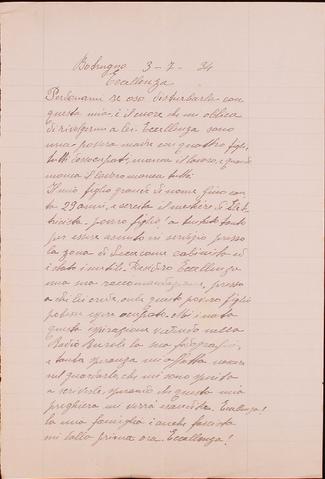 Bobrugno 3-7-34
Eccellenza
Perdonami se oso disturbarla con
questa mia: è il cuore che mi obbliga
di rivolgermi a lei. Eccellenza sono
una povera madre con quattro figli,
tutti disoccupati, manca il lavoro, e quando
manca il lavoro manca tutto.
Il mio figlio grande di nome Gino con
ta 29 anni, e esercita il mestiere di Elet
tricista povero figlio a tanto
per essere assunto in servizio presso
la zona di Lecce come cabinista ed
è stato inutile. Desidero Eccellenza
una sua raccomandazione, presso
a chi lei crede, onde questo povero figlio
potesse essere occupato. Mi è nata
questa ispirazione vedendo nella
la sua fotografia,
e tanta speranza mi
nel guardarla, che mi sono spinta
a scriverle, sperando che questa mia
preghiera mi verrà esaudita. Eccellenza!
la mia famiglia è anche fascista
di tutto prima ora. Eccellenza!